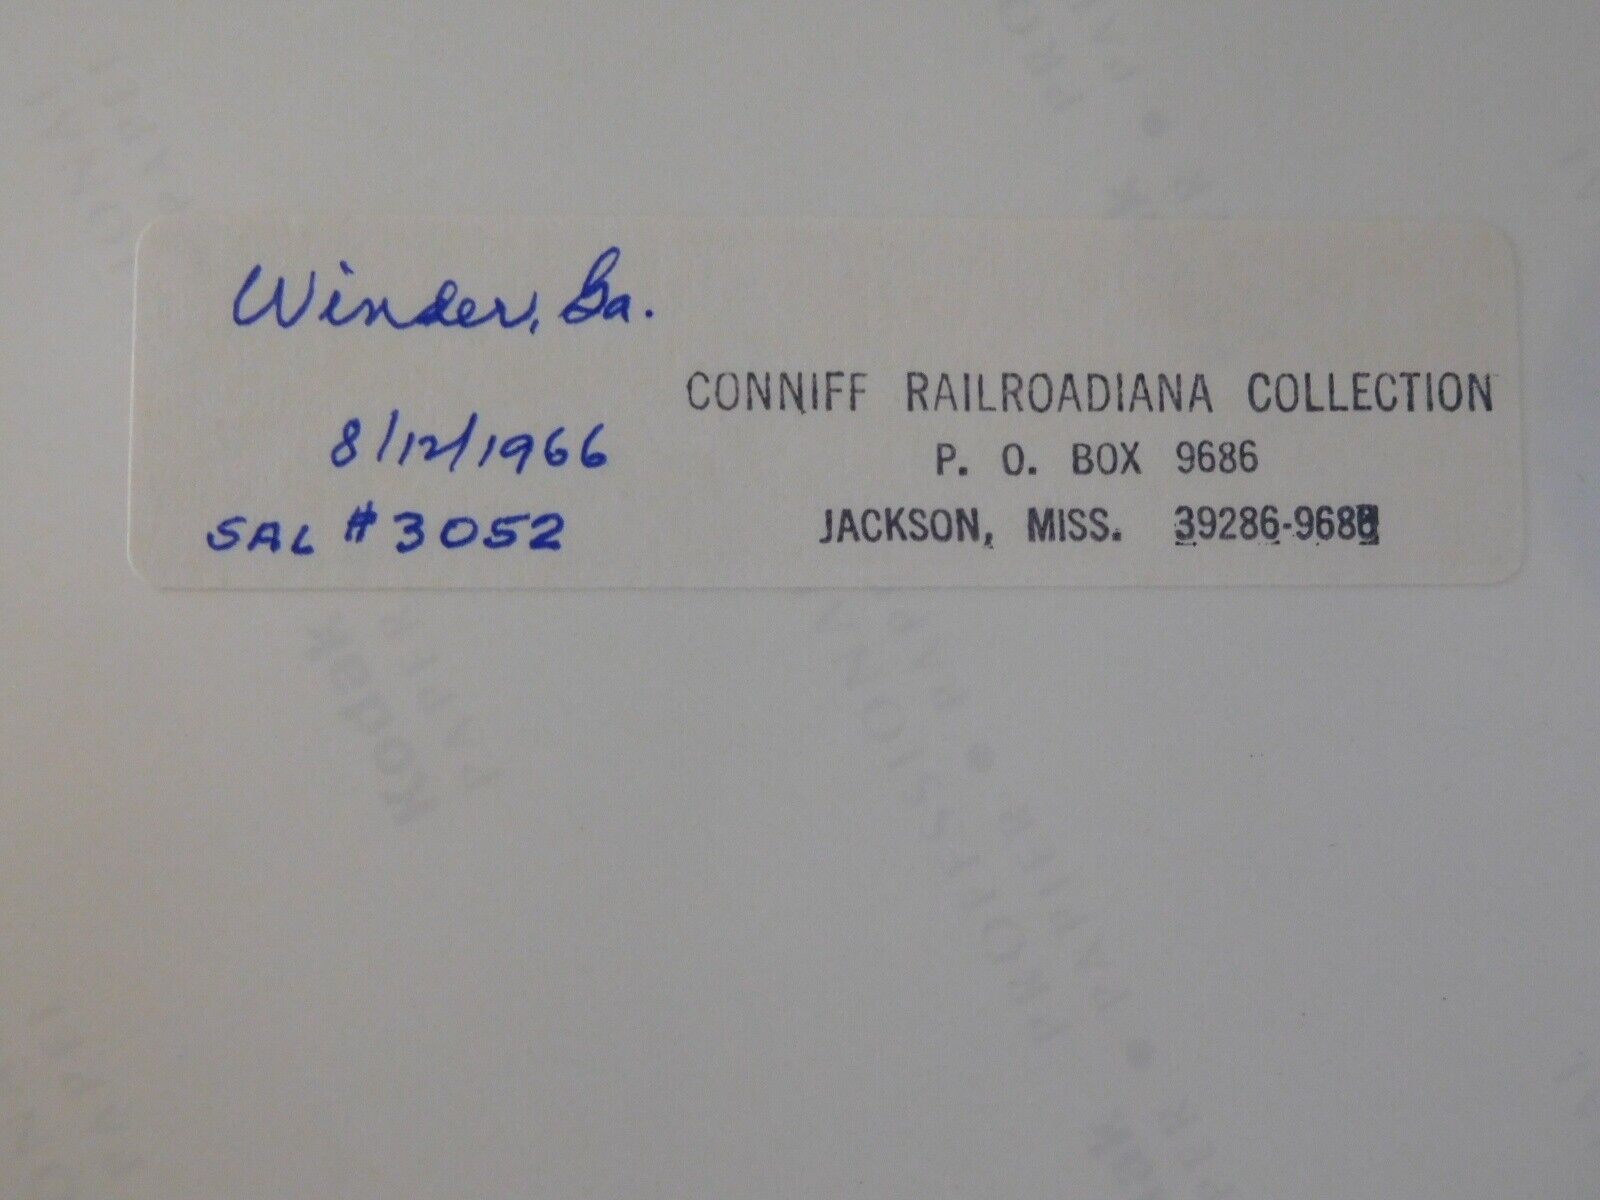 Winder, Ga.
8/12/1966
SAL #3052
CONNIFF RAILROADIANA COLLECTION
P. O. BOX 9686
JACKSON, MISS. 39286-9686
Kodak
PROFESSIONAL
PAPER